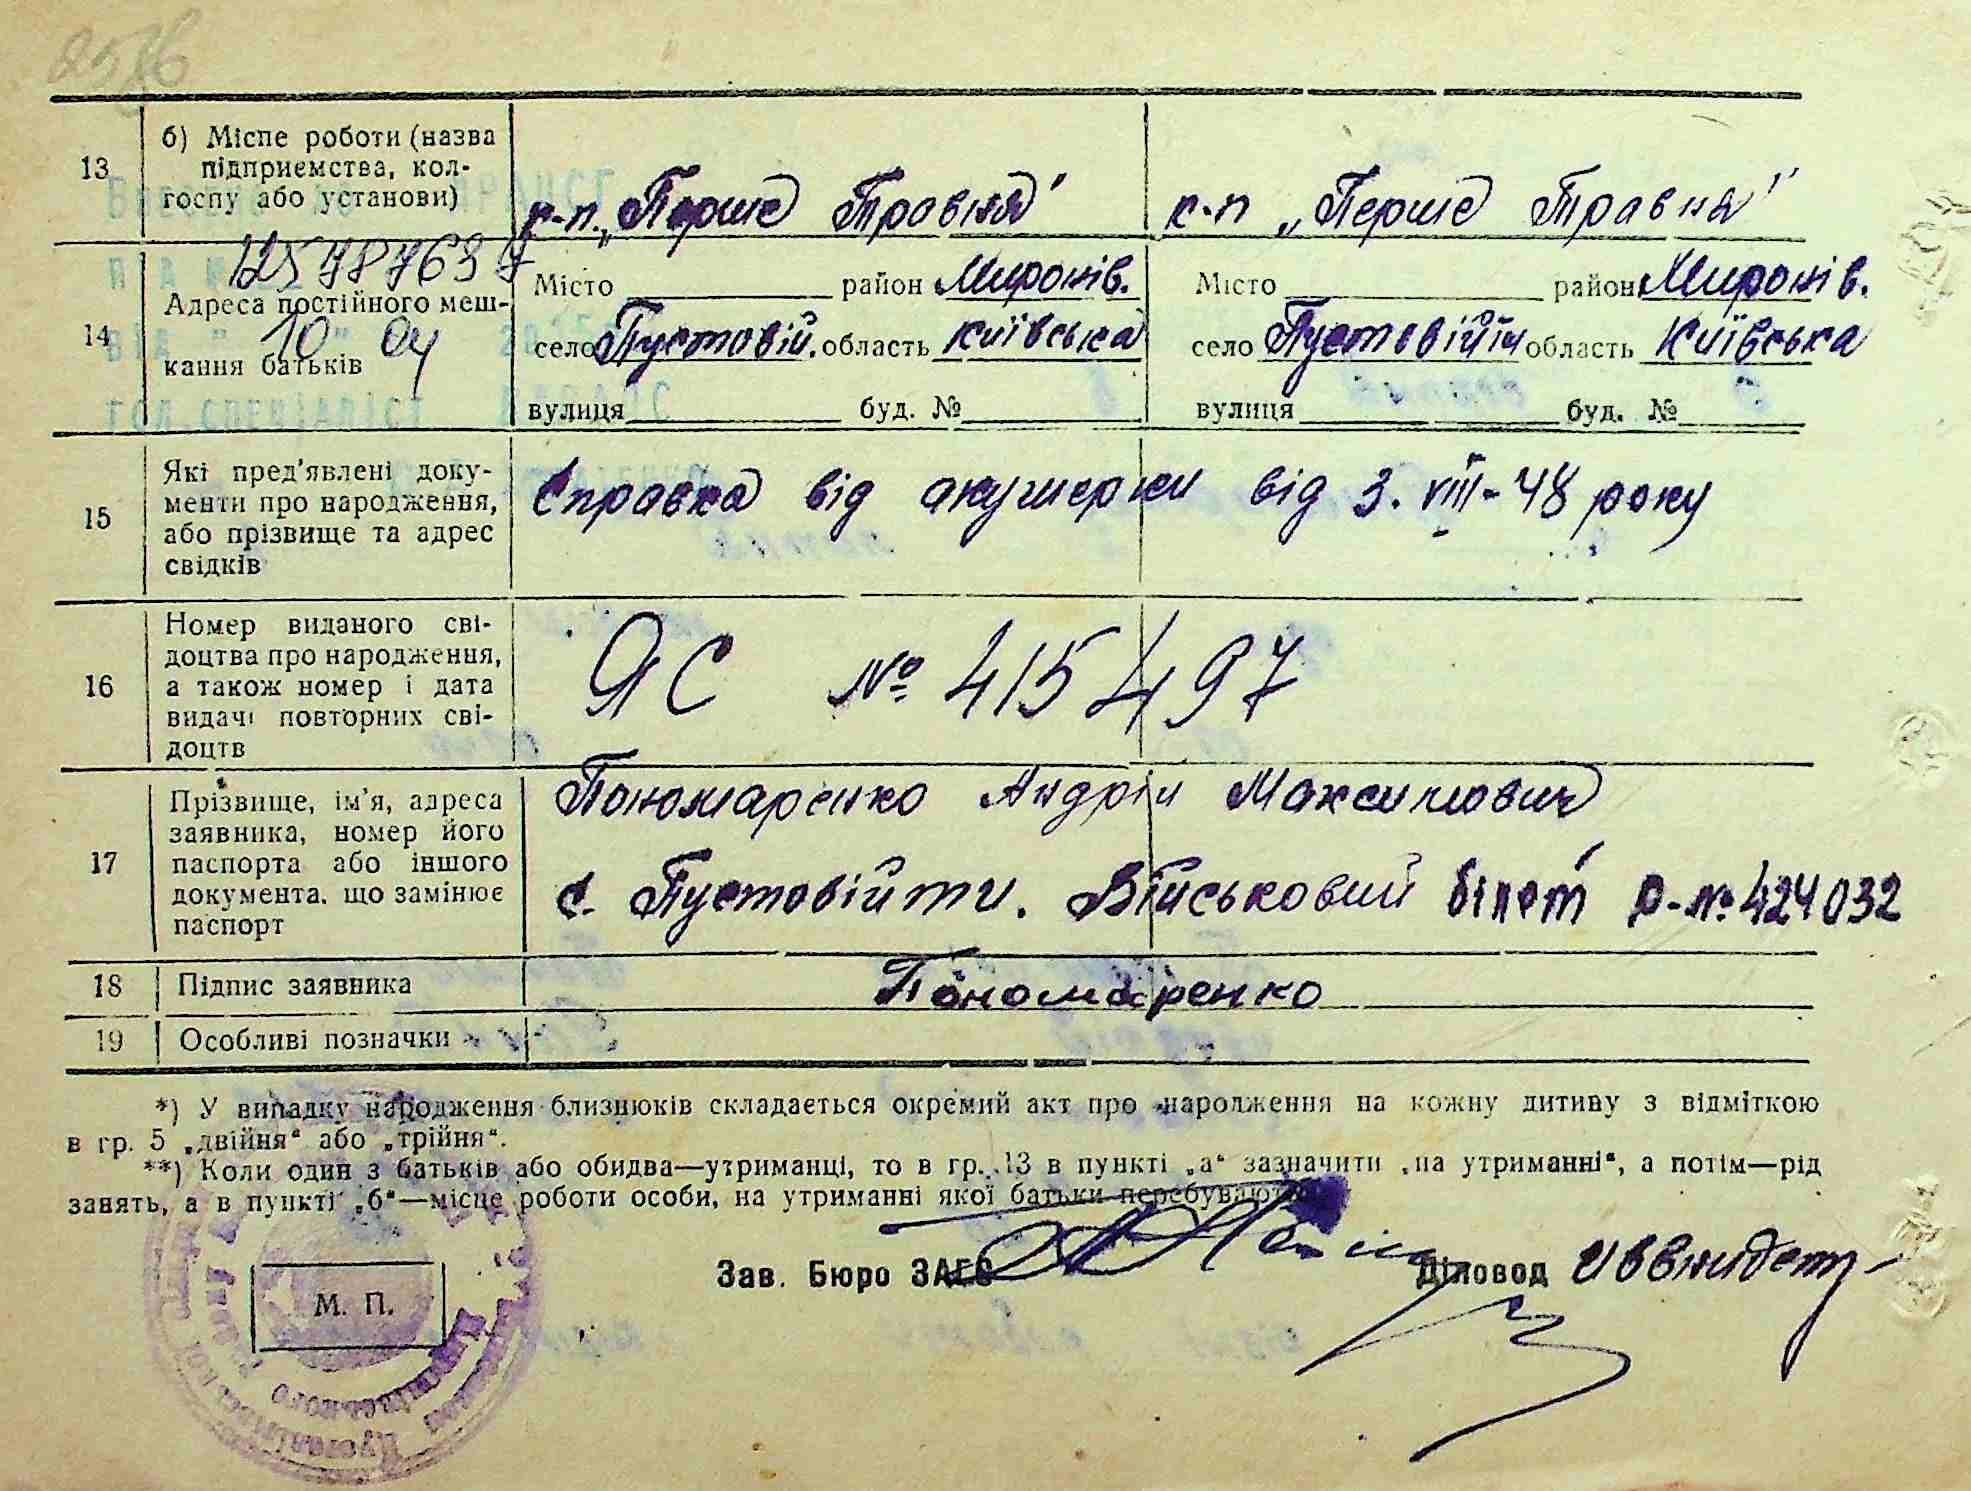 2576
13
б) Місце роботи (назва підприємства, колгоспу або установи)
к-п. „Перше Травня"
к-п „Перше Травня"
1257877639
10 04
14
Адреса постійного мешкання батьків
Місто район Миронів.
село Пустовій. область Київська
вулиця буд. №
Місто район Миронів.
село Пустовійти область Київська
вулиця буд. №
15
Які пред'явлені документи про народження, або прізвище та адрес свідків
Справка від акушерки від 3. VIII-48 року
16
Номер виданого свідоцтва про народження, а також номер і дата видачі повторних свідоцтв
ЯС № 415497
17
Прізвище, ім'я, адреса заявника, номер його паспорта або іншого документа, що замінює паспорт
Пономаренко Андрій Максимович
с. Пустовійти. Військовий білет р-№ 424032
18
Підпис заявника
Пономаренко
19
Особливі позначки
*) У випадку народження близнюків складається окремий акт про народження на кожну дитину з відміткою
в гр. 5 „двійня" або „трійня".
**) Коли один з батьків або обидва—утриманці, то в гр. 13 в пункті „а" зазначити „на утриманні", а потім—рід
занять, а в пункті „б"—місце роботи особи, на утриманні якої батьки перебувають.
Зав. Бюро ЗАГС
Діловод
М. П.